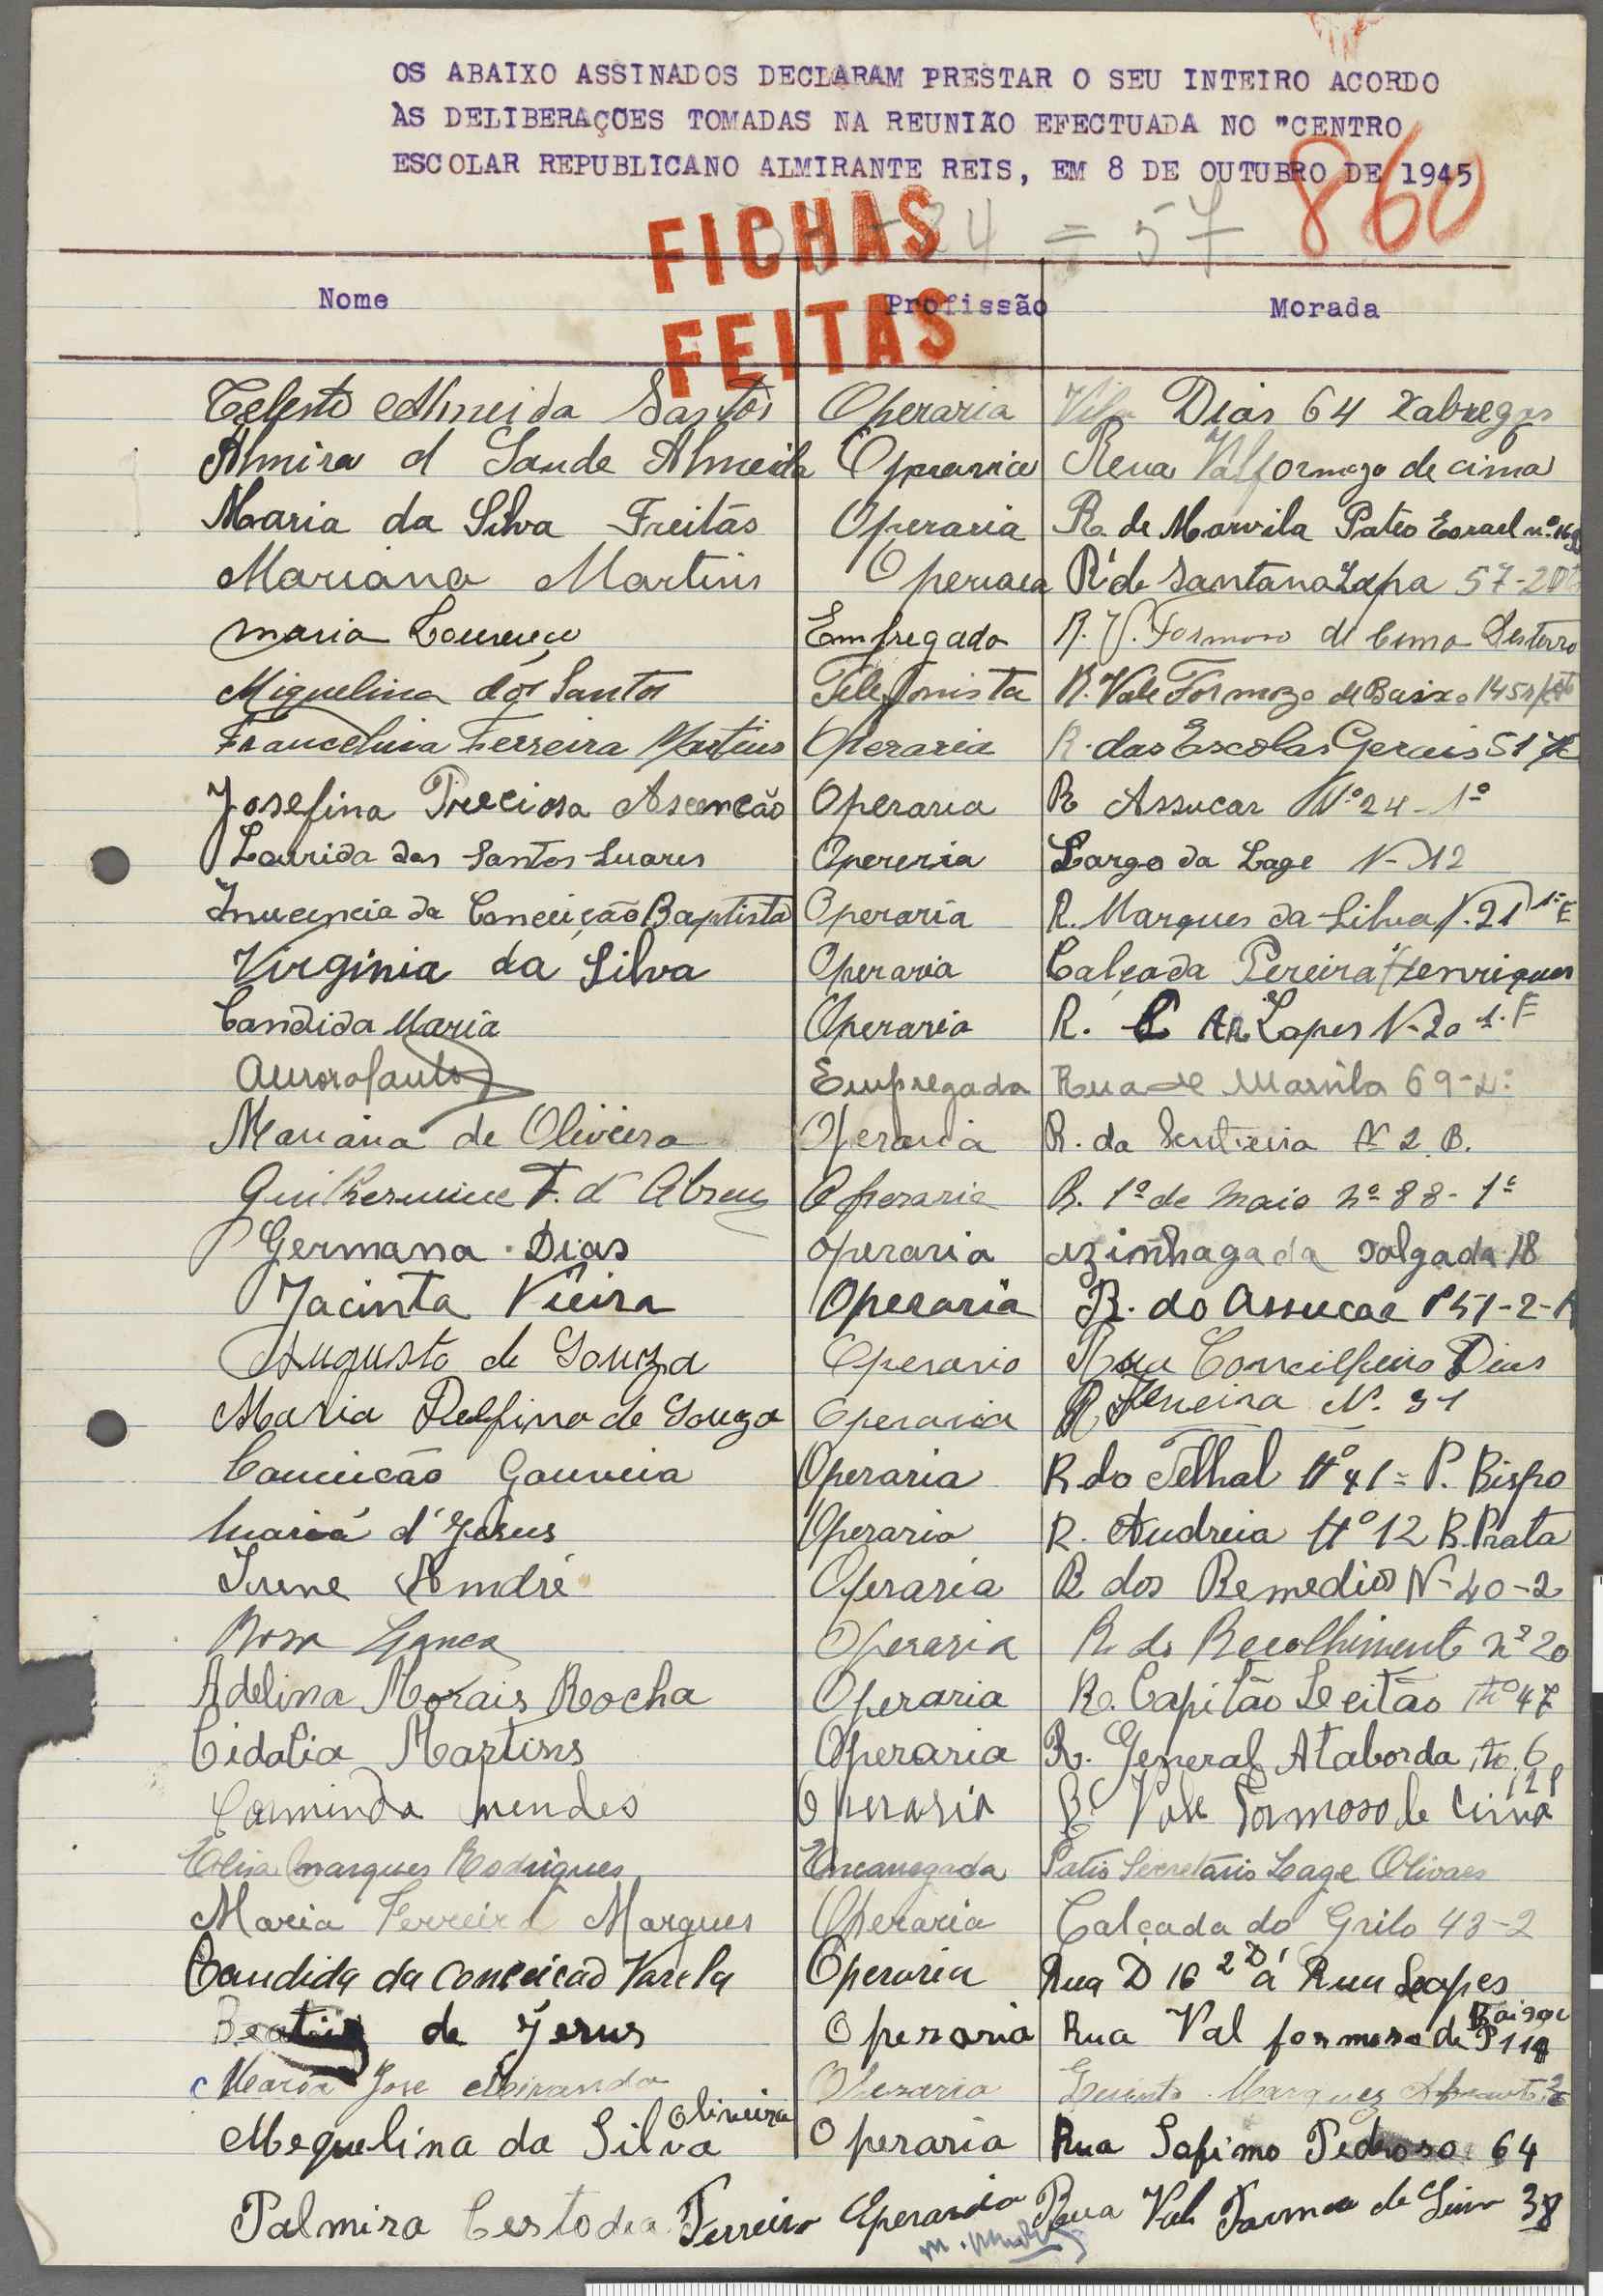 OS ABAIXO ASSINADOS DECLARAM PRESTAR O SEU INTEIRO ACORDO
ÀS DELIBERAÇÕES TOMADAS NA REUNIÃO EFECTUADA NO "CENTRO
ESCOLAR REPUBLICANO ALMIRANTE REIS, EM 8 DE OUTUBRO DE 1945
860
24 = 57
FICHAS
FEITAS
Nome Profissão Morada
Celeste Almeida Santos Operaria Vila Dias 64 Xabregas
Almira d Saude Almeida Operaria Rua Valformozo de cima
Maria da Silva Freitas Operaria R. de Marvila Pateo Esrael nº 16
Mariana Martins Operaria R. de Santana Lapa 57-2
maria Lourenço Empregada R. V. Formoso de Cima Desterro
Miguelina dos Santos Telefonista R. Vale Formozo de Baixo 145
Francelina Ferreira Martins Operaria R. das Escolas Gerais 51
Josefina Preciosa Ascenção Operaria R Assucar Nº 24-1º
Laurida dos Santos Suares Opereria Largo da Lage N-12
Inucencia da Conceição Baptista Operaria R. Marques da Silva N. 21 1º E
Virginia da Silva Operaria Calçada Pereira Henriques
Candida Maria Operaria R. C AR Lopes N-20 1. E
Aurora Santos Empregada Rua de Marvila 69-2º
Mariana de Oliveira Operaria R. da Centieira Nº 2 B.
Guilhermine F. d'Abreu Operaria R. 1º de Maio nº 88-1º
Germana Dias operaria azinhaga da Salgada 18
Jacinta Vieira Operaria R. do Assucar P 51-2-
Augusto de Souza Operario Rua Conselheiro Dias
Maria Delfina de Souza Operaria Ferreira N. 31
Conceicão Gouveia Operaria R. do Telhal Nº 41 = P. Bispo
Maria d'Jesus Operaria R. Andreia Nº 12 B. Prata
Irene André Operaria R dos Remedios N-40-2
Rosa Operaria R. do Recolhimento nº 20
Adelina Morais Rocha Operaria R. Capitão Leitão nº 47
Cidalia Martins Operaria R. General A Taborda nº 6
Carminda Mendes Operaria R. Vale Formoso de Cima 121
Elisa Marques Rodrigues Encarregada Patio Secretario Lage Olivaes
Maria Ferreira Marques Operaria Calçada do Grilo 43-2
Candida da Conceicao Varela Operaria Rua D 16 2º D á Rua Lopes
Beatriz de Jesus Operaria Rua Val formoso de Baixo P 114
Maria Jose Miranda Operaria
Meguelina da Silva Oliveira Operaria Rua Pedroso 64
Palmira Custodia Ferreira Operaria Rua Val Formoso de Sima 38